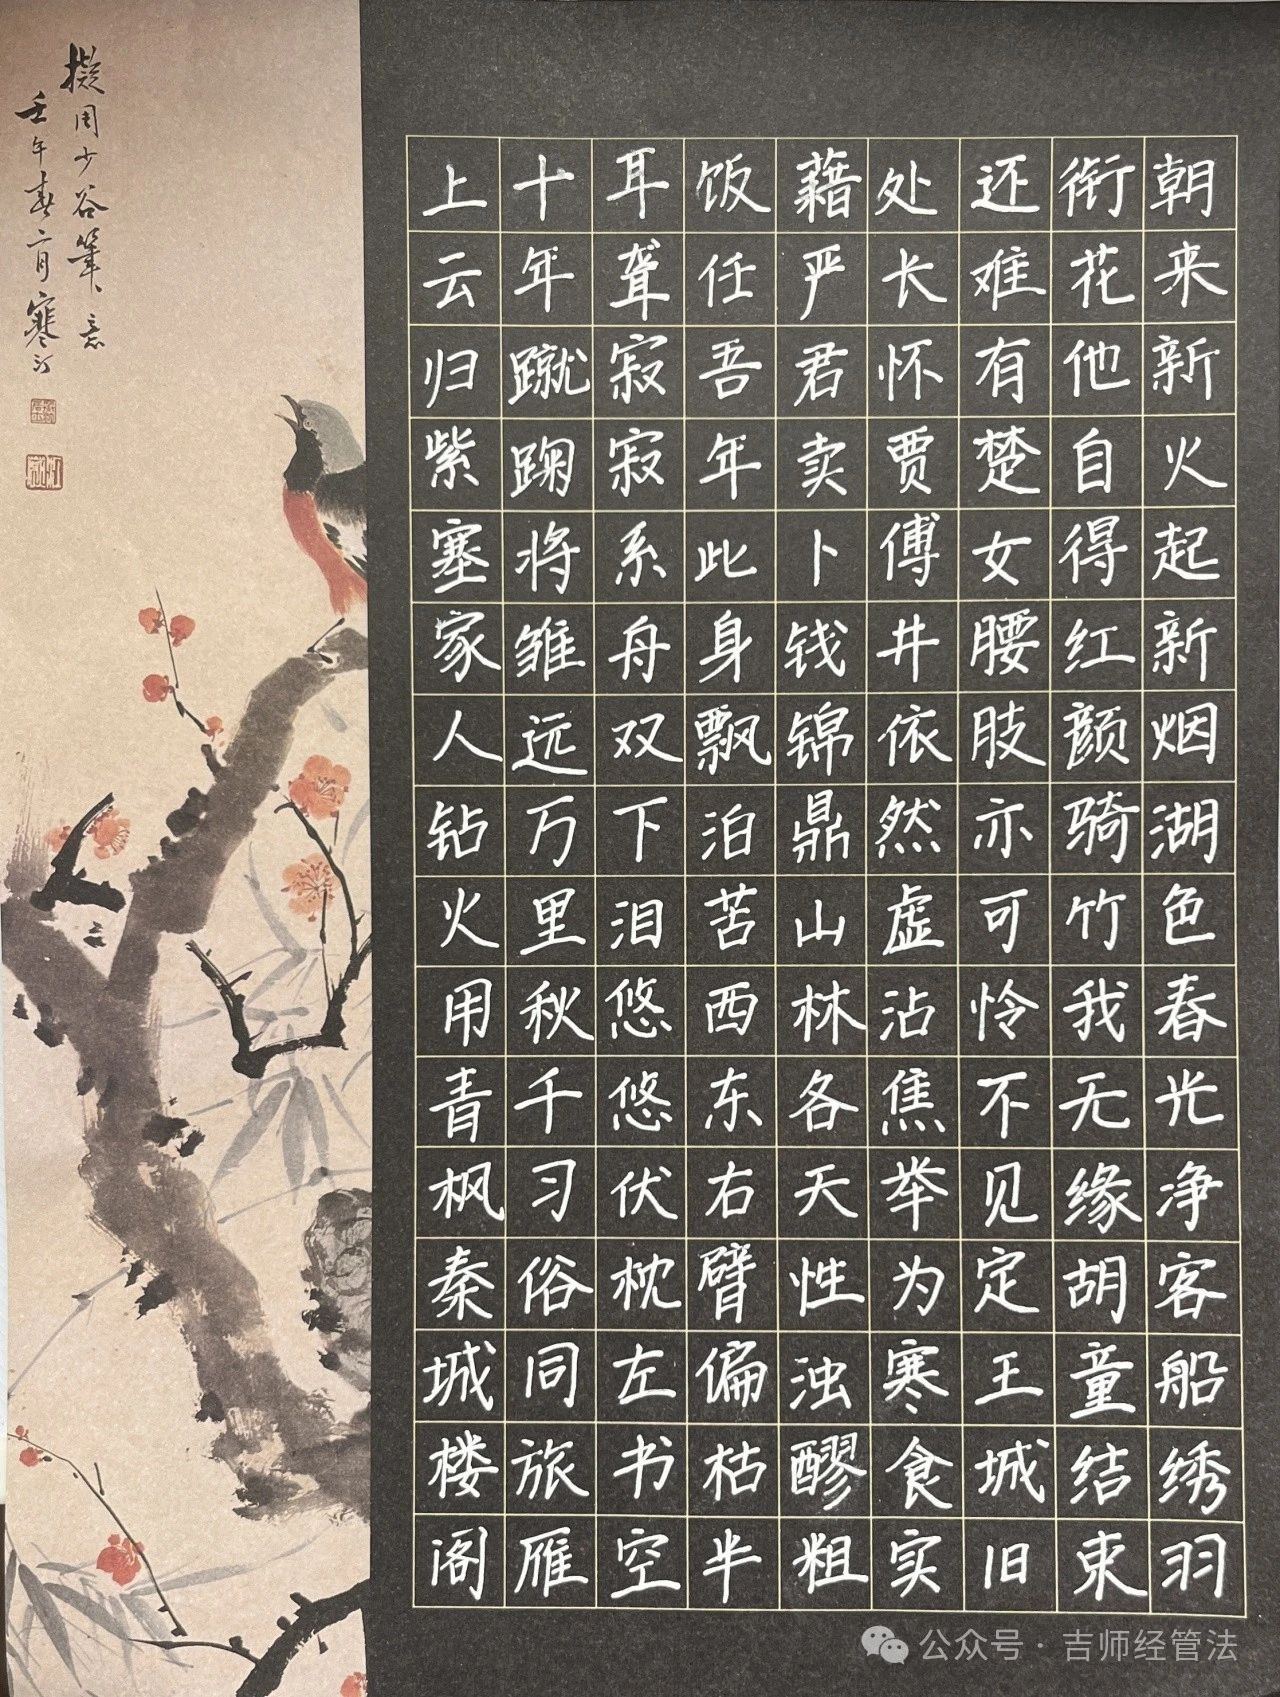 朝来新火起新烟湖色春光净客船绣羽
衔花他自得红颜骑竹我无缘胡童结束
还难有楚女腰肢亦可怜不见定王城旧
处长怀贾傅井依然虚沾焦举为寒食实
藉严君卖卜钱锦鼎山林各天性浊醪粗
饭任吾年此身飘泊苦西东右臂偏枯半
耳聋寂寂系舟双下泪悠悠伏枕左书空
十年蹴踘将雏远万里秋千习俗同旅雁
上云归紫塞家人钻火用青枫秦城楼阁
擬周少谷筆意
壬午春二月寒汀
公众号·吉师经管法